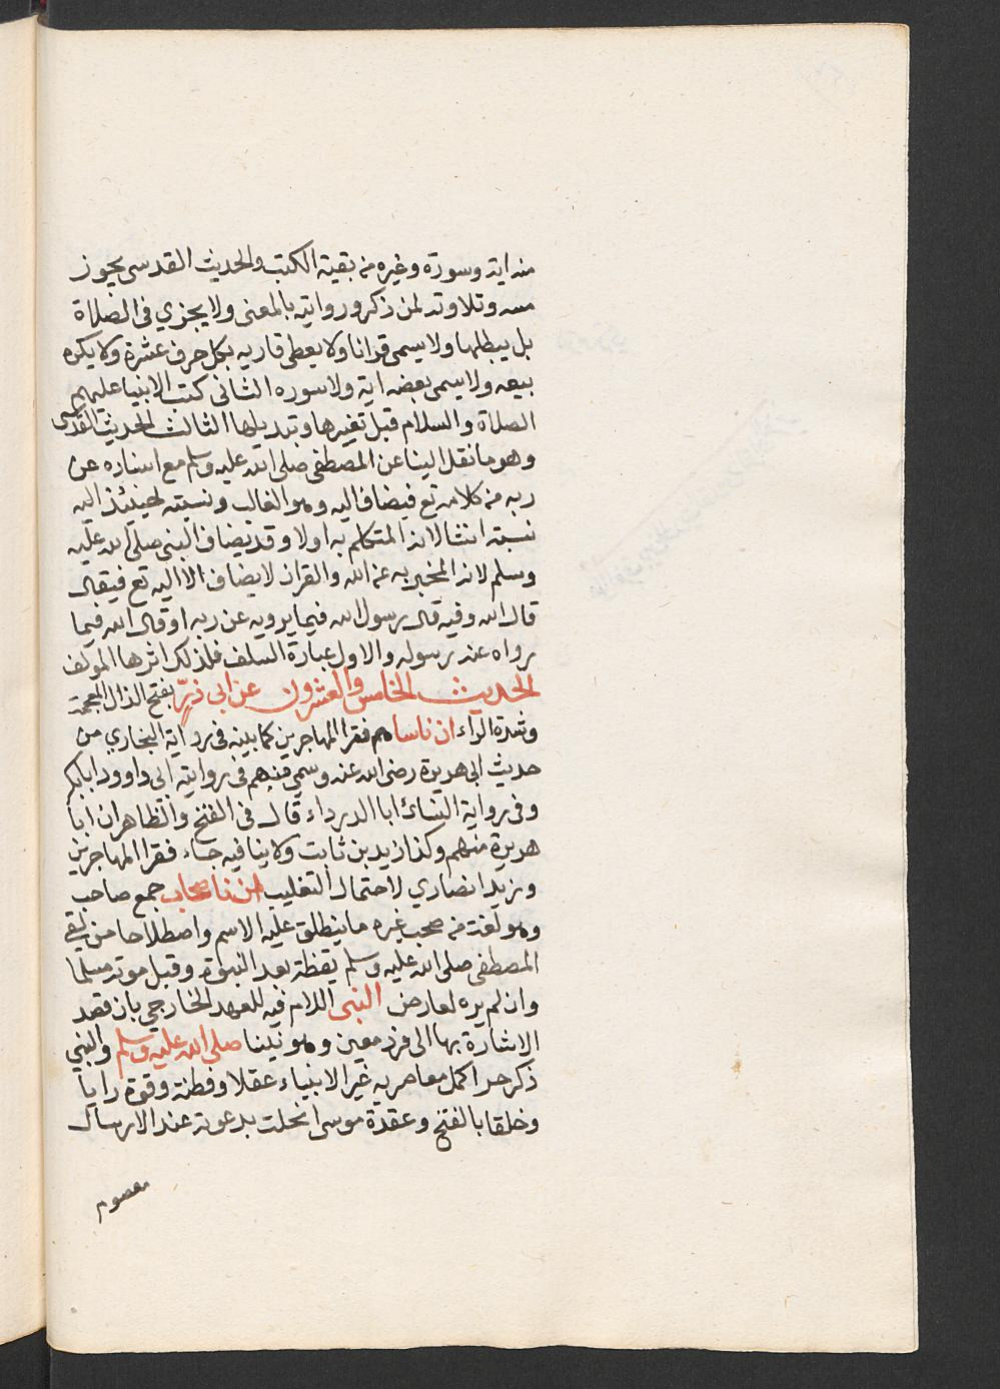 منه اية وسورة وغيره من بقية الكتب والحديث القدسي يجوز
مسه وتلاوته لمن ذكر وروايته بالمعنى ولا يجزي في الصلاة
بل يبطلها ولا يسمى قرانا ولا يعطى قاريه بكل حرف عشرة ولا يكره
بيعه ولا يسمى بعضه اية ولا سوره الثاني كتب الانبيا عليهم
الصلاة والسلام قبل تغيرها وتبديلها الثالث الحديث القدسي
وهو ما نقل الينا عن المصطفى صلى الله عليه وسلم مع اسناده عن
ربه من كلامه تع فيضاف اليه وهو الغالب ونسبته حينيئذ اليه
نسبته انشا لانه المتكلم به اولا وقد يضاف النبي صلى الله عليه
وسلم لانه المخبر به عن الله والقران لا يضاف الا اليه تع فيقال
قال الله وفيه قال رسول الله فيما يرويه عن ربه او قال الله فيما
رواه عنه رسوله والاول عبارة السلف فلذلك اثرها المولف
الحديث الخامس والعشرون عن ابي ذرّ بفتح الذال المعجمة
وشدة الرآء ان ناسا هم فقرا المهاجرين كما بينه في رواية البخاري من
حديث ابي هريرة رضى الله عنه وسمي منهم في رواية ابى داوود ابا بكر
وفي رواية النساي ابا الدرداء قال في الفتح والظاهر ان ابا
هريرة منهم وكذا زيد بن ثابت ولا ينافيه جاء فقرا المهاجرين
وزيد انصاري لاحتمال التغليب من اصحاب جمع صاحب
وهو لغة من صحب غيره ما ينطلق عليه الاسم واصطلاحا من لقي
المصطفى صلى الله عليه وسلم يقظة بعد النبوة وقبل موته مسلما
وان لم يره لعارض النبى اللام فيه للعهد الخارجي بان قصد
الاشارة بها الى فرد معين وهو نبينا صلى الله عليه وسلم والنبي
ذكر حر اكمل معاصريه غير الانبياء عقلا وفطنة وقوة رايا
وخلقا بالفتح وعقدة موسى انحلت بدعوته عند الارسال
معصوم